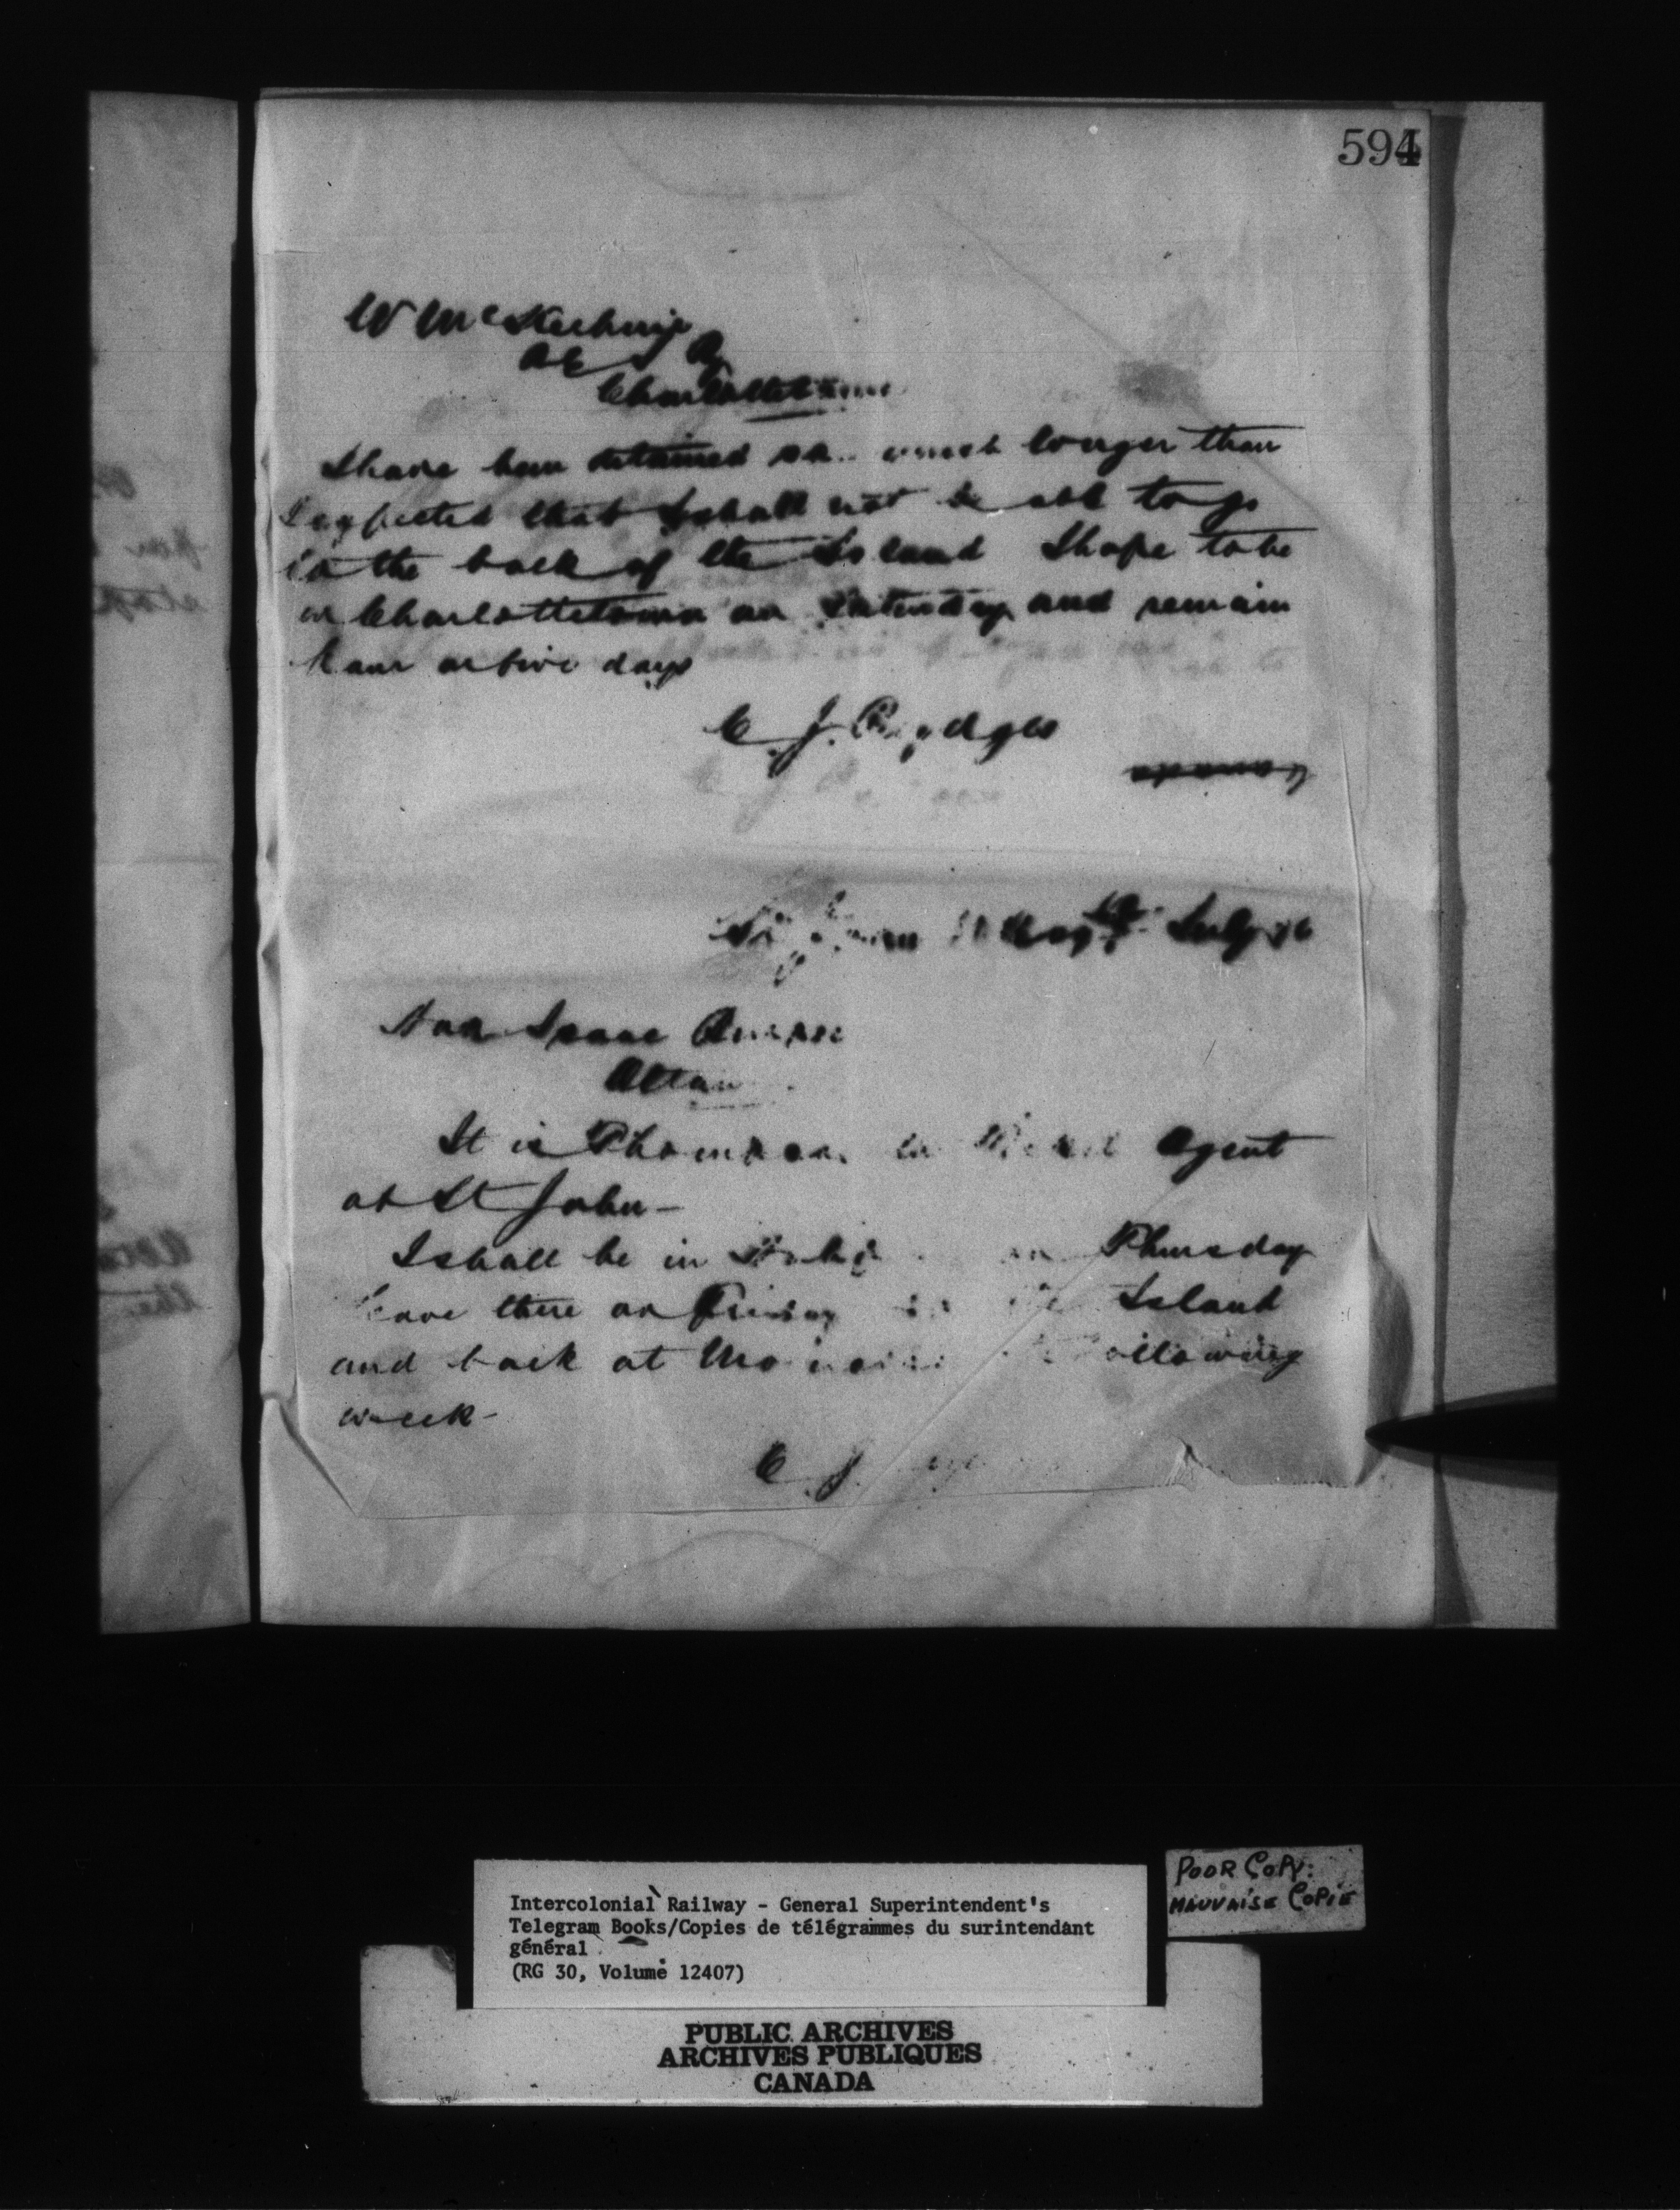 594
W McKechnie
Charlottetown
I have been detained so much longer than
I expected that I shall not be able to go
to the back of the Island I hope to be
in Charlottetown on Saturday and remain
four or five days
C. J. Brydges
July 76
Hon Isaac Burpee
Ottawa
It is Thompson Agent
at St John -
I shall be in on Thursday
leave there on Friday Island
and back at Moncton following
week -
C J
Intercolonial Railway - General Superintendent's
Telegram Books/Copies de télégrammes du surintendant
général
(RG 30, Volume 12407)
POOR COPY:
MAUVAISE COPIE
PUBLIC ARCHIVES
ARCHIVES PUBLIQUES
CANADA